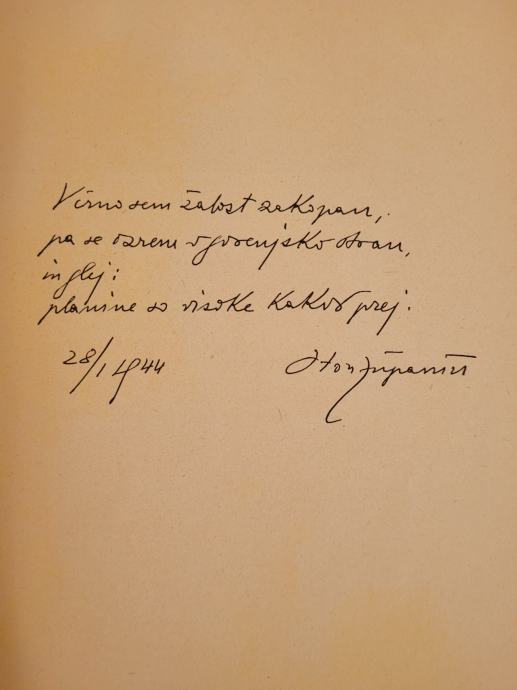 V črno sem žalost zakopan,
pa se ozrem v gorenjsko stran,
in glej:
planine so visoke kakor prej.
28/I 1944 Oton Župančič